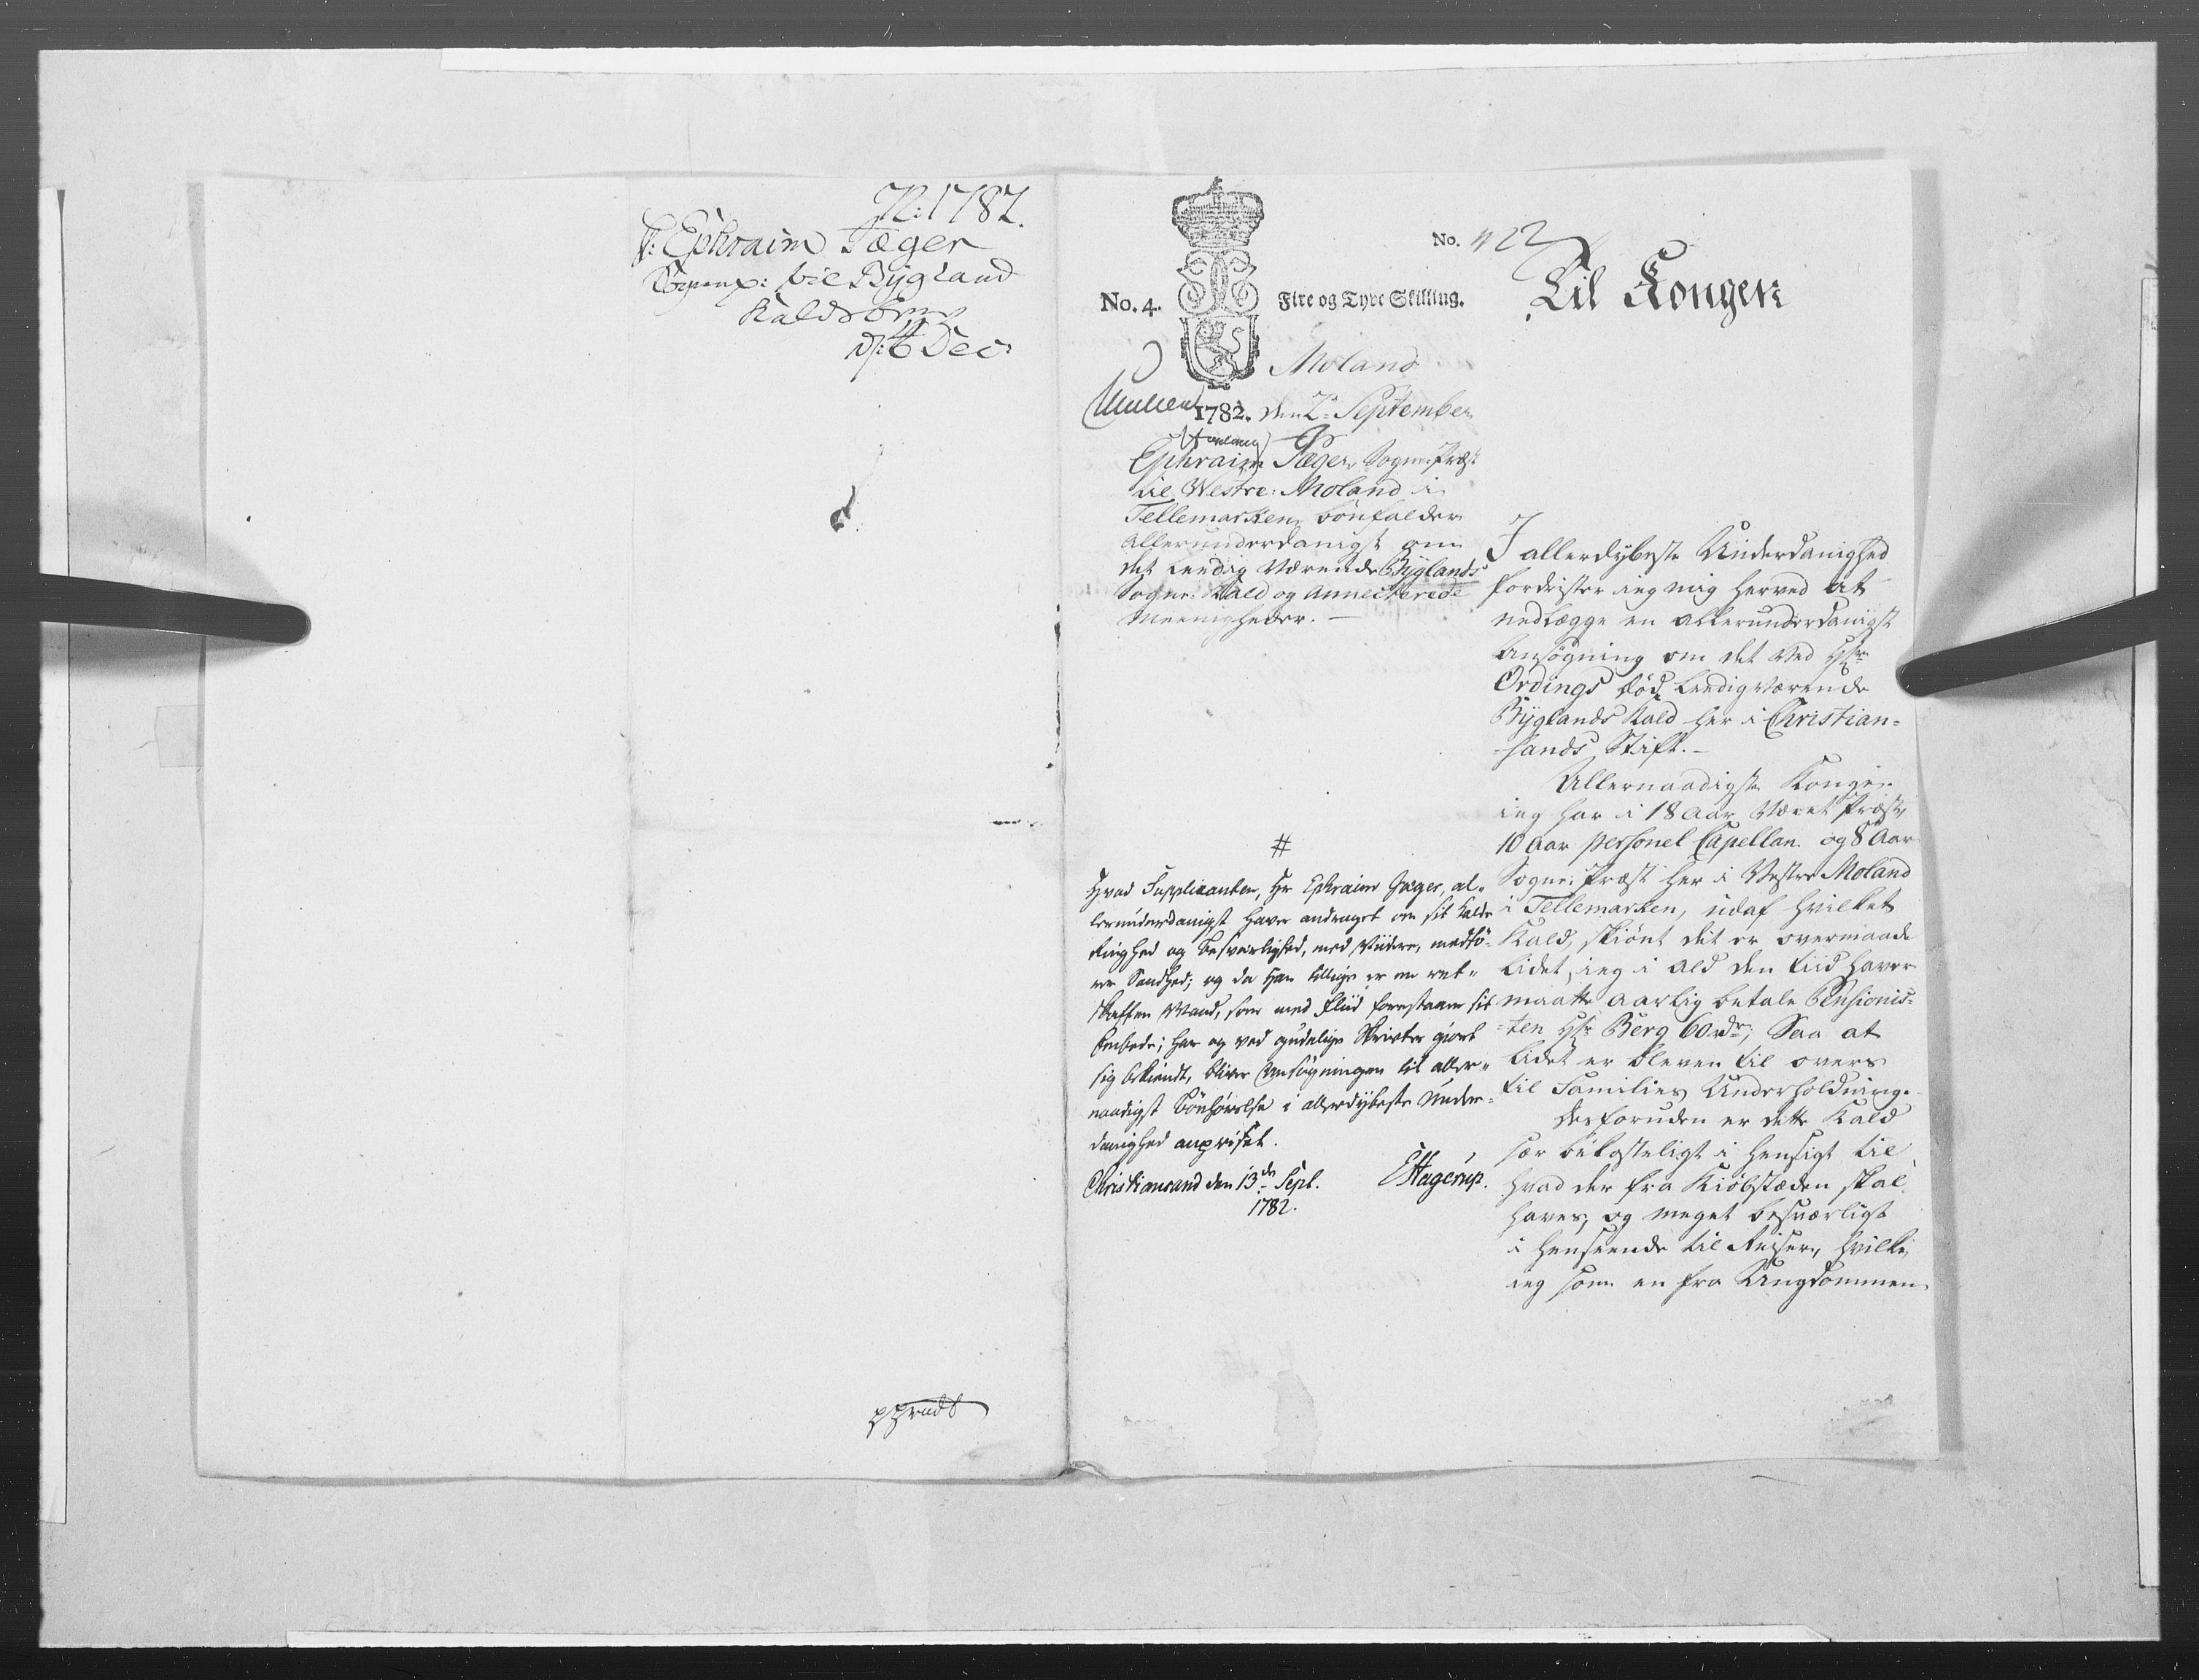 No: 1782.
Ephraim Jæger
til Bygland
Kald
6 Dec:
No. 422
No. 4.
Fire og Tyve Skilling.
Til Kongen
Moland
1782. den 2: September
Ephraim Jæger, Sogne-Præst
til Westre: Moland i
Tellemarken, bønfalder
allerunderdanigst om
det Leedig værende Byglands
Sogne: Kald og annecterede
Meenigheder. —
I allerdybeste Underdanighed
fordrister ieg mig herved at
nedlægge en allerunderdanigst
Ansøgning om det ved Hr
Ordings død Leedig værende
Byglands Kald her i Christian-
-sands Stift. —
Allernaadigste Konge
ieg har i 18 Aar været Præst,
10 Aar personel Capellan og 8 Aar
Sogne: Præst her i Vestre Moland
i Tellemarken, udaf hvilket
Kald, skiønt det er overmaade
Lidet, ieg i ald den tiid haver
maatte aarlig betale Pensionis-
-ten Hr Berg 60 rdr; Saa at
Lidet er bleven til overs
til Familiens Underholdning.
desforuden er dette Kald
saer bekosteligt i henseigt til
hvad der fra Kiøbstæden skal
haves, og meget besværligt
i henseende til Reiser, hvilke
ieg som en fra Ungdommen
#
Hvad Supplicanten, Hr Ephraim Jæger, al-
lerunderdanigst haver andraget om sit Kalds
Ringhed og besværlighed, med Viidere, medfø-
rer Sandhed; og da han tillige er en ret-
skaffen Mand, som med Fliid forestaaer sit
Embede; har og ved gudelige Skrifter giort
sig bekiendt, bliver Ansøgningen til aller-
naadigst Bønhørelse i allerdybeste Under-
danighed anpriset.
Christiansand den 13de Sept.
1782.
E Hagerup.